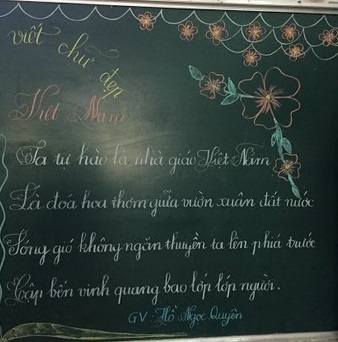 viết chữ đẹp
Việt Nam
Ta tự hào là nhà giáo Việt Nam
Là đoá hoa thơm giữa vườn xuân đất nước
Sóng gió không ngăn thuyền ta lên phiá trước
Cập bến vinh quang bao lớp lớp người.
GV: Hồ Ngọc Quyên